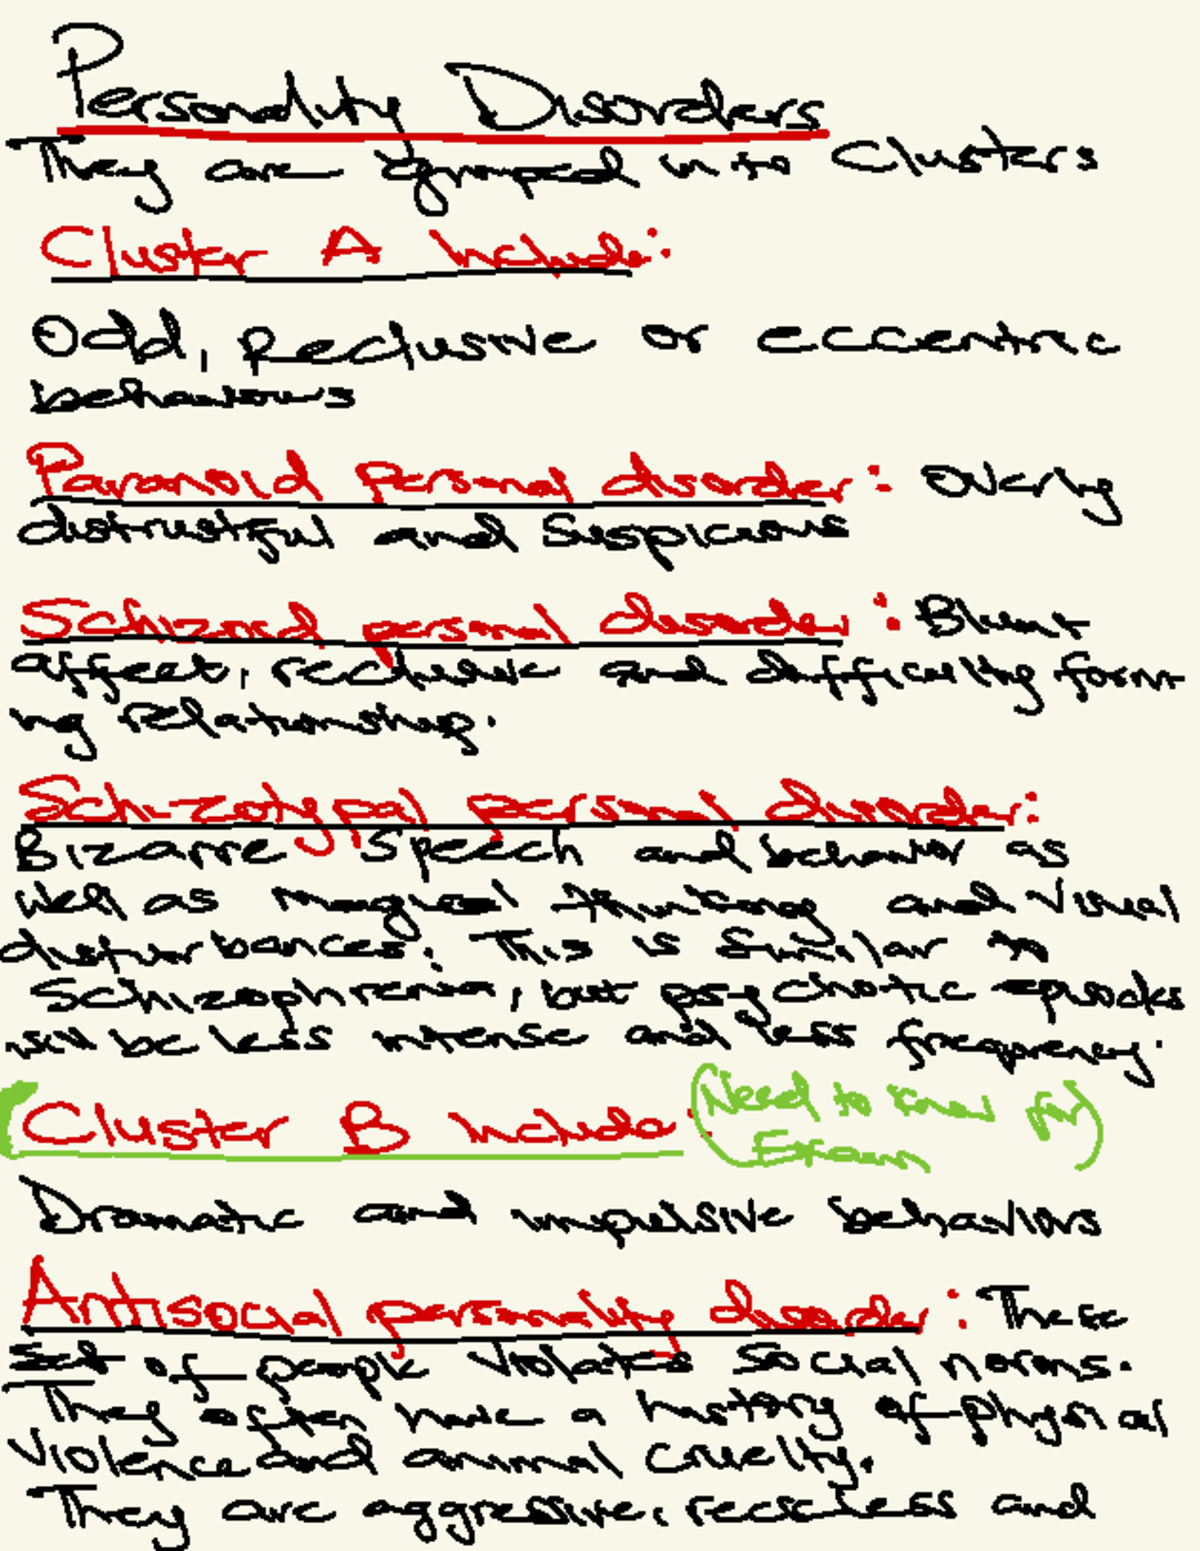 Personality Disorders
They are grouped into Clusters
Cluster A Include:
Odd, Reclusive or eccentric
behaviours
Paranoid personal disorder: Overly
distrustful and Suspicious
Schizoid personal disorder: Blunt
affect, reclusive and difficulty form
ing relationship.
Schizotypal personal disorder:
Bizarre Speech and behavior as
well as magical thinking and Visual
disturbances. This is Similar to
Schizophrenia, but psychotic episodes
will be less intense and less frequency.
Cluster B Include: (Need to know for
Exam)
Dramatic and impulsive behaviors
Antisocial personality disorder: These
Set of people violates Social norms.
They often have a history of physical
Violence and animal cruelty.
They are aggressive, reckless and